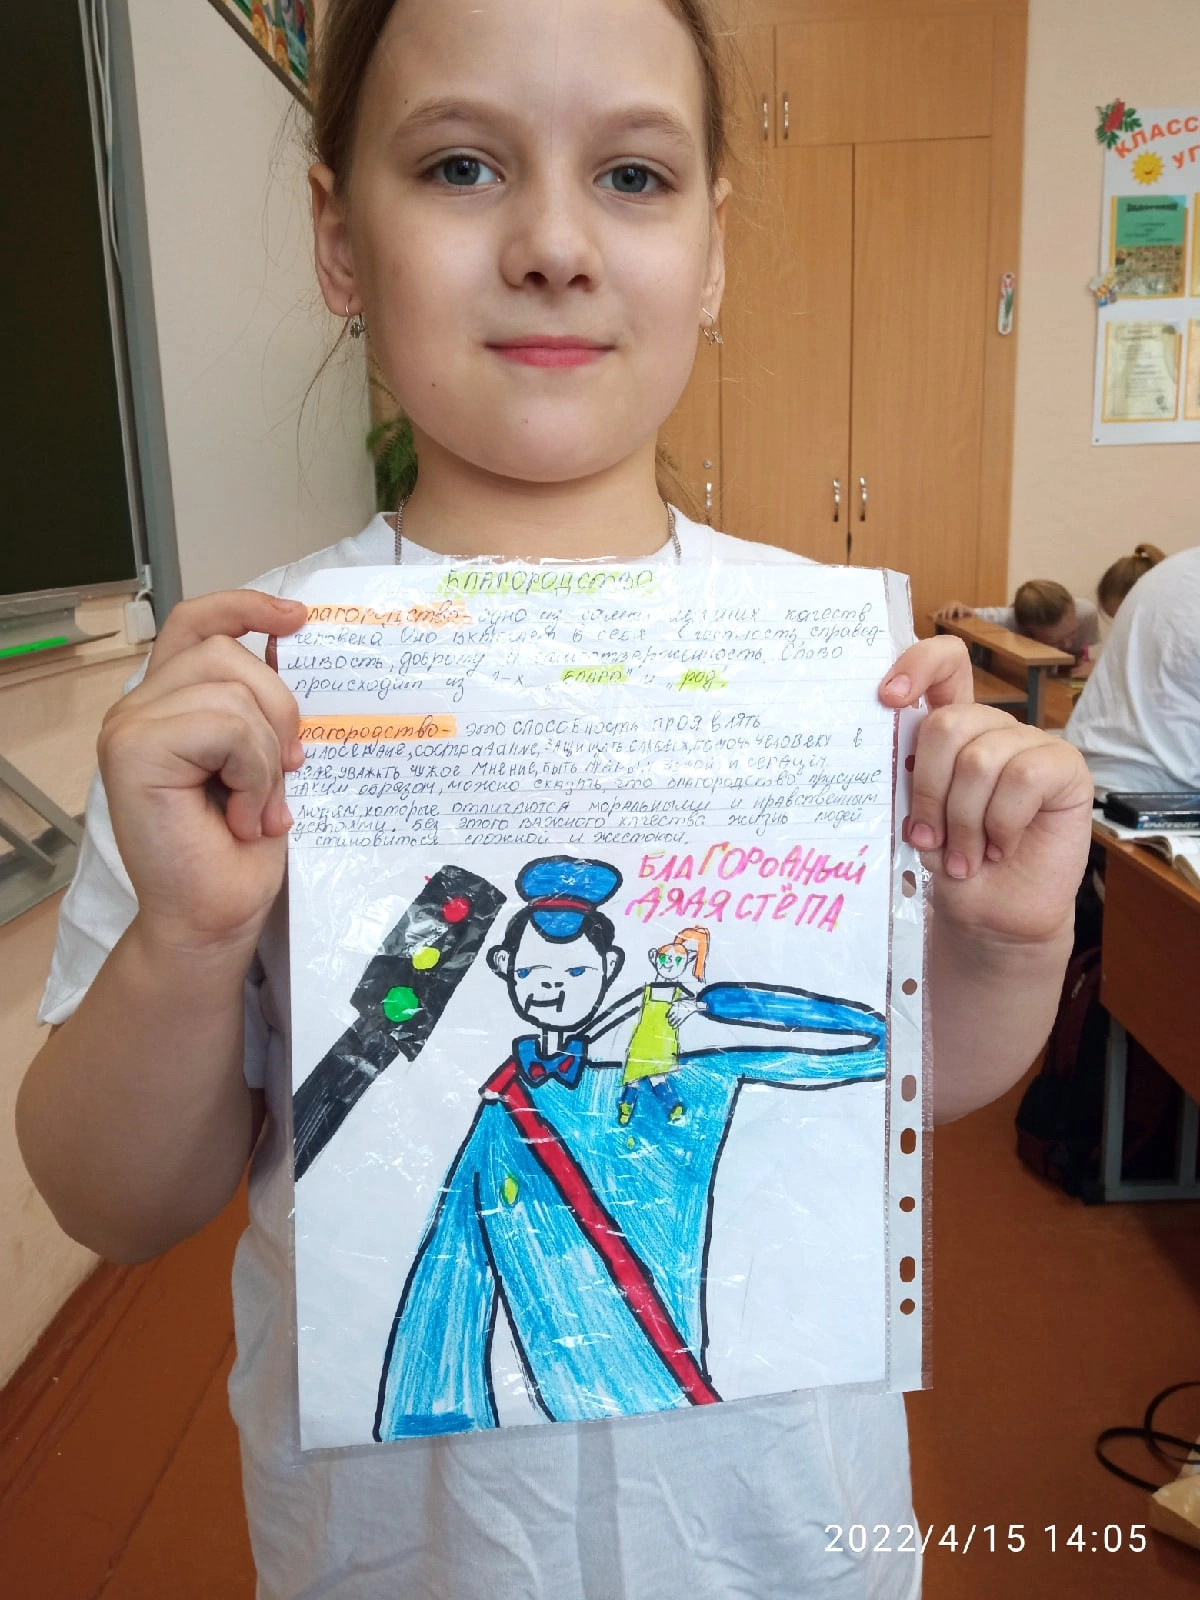 БЛАГОРОДСТВО
лагородство- одно из самых лучших качеств
человека. Оно включает в себя честность, справед-
ливость, доброту и самоотверженность. Слово
происходит из 2-х „благо" и „род".
лагородство- это способность проявлять
милосердие, сострадание, защищать слабых, помочь человеку в
беде, уважать чужое мнение, быть душой и сердцем.
Таким образом, можно сказать, что благородство присуще
людям, которые отличаются моральными и нравственными
устоями. Без этого важного качества жизнь людей
становиться сложной и жестокой.
БЛАГОРОДНЫЙ
ДЯДЯ СТЁПА
КЛАСС
УГ
2022/4/15 14:05